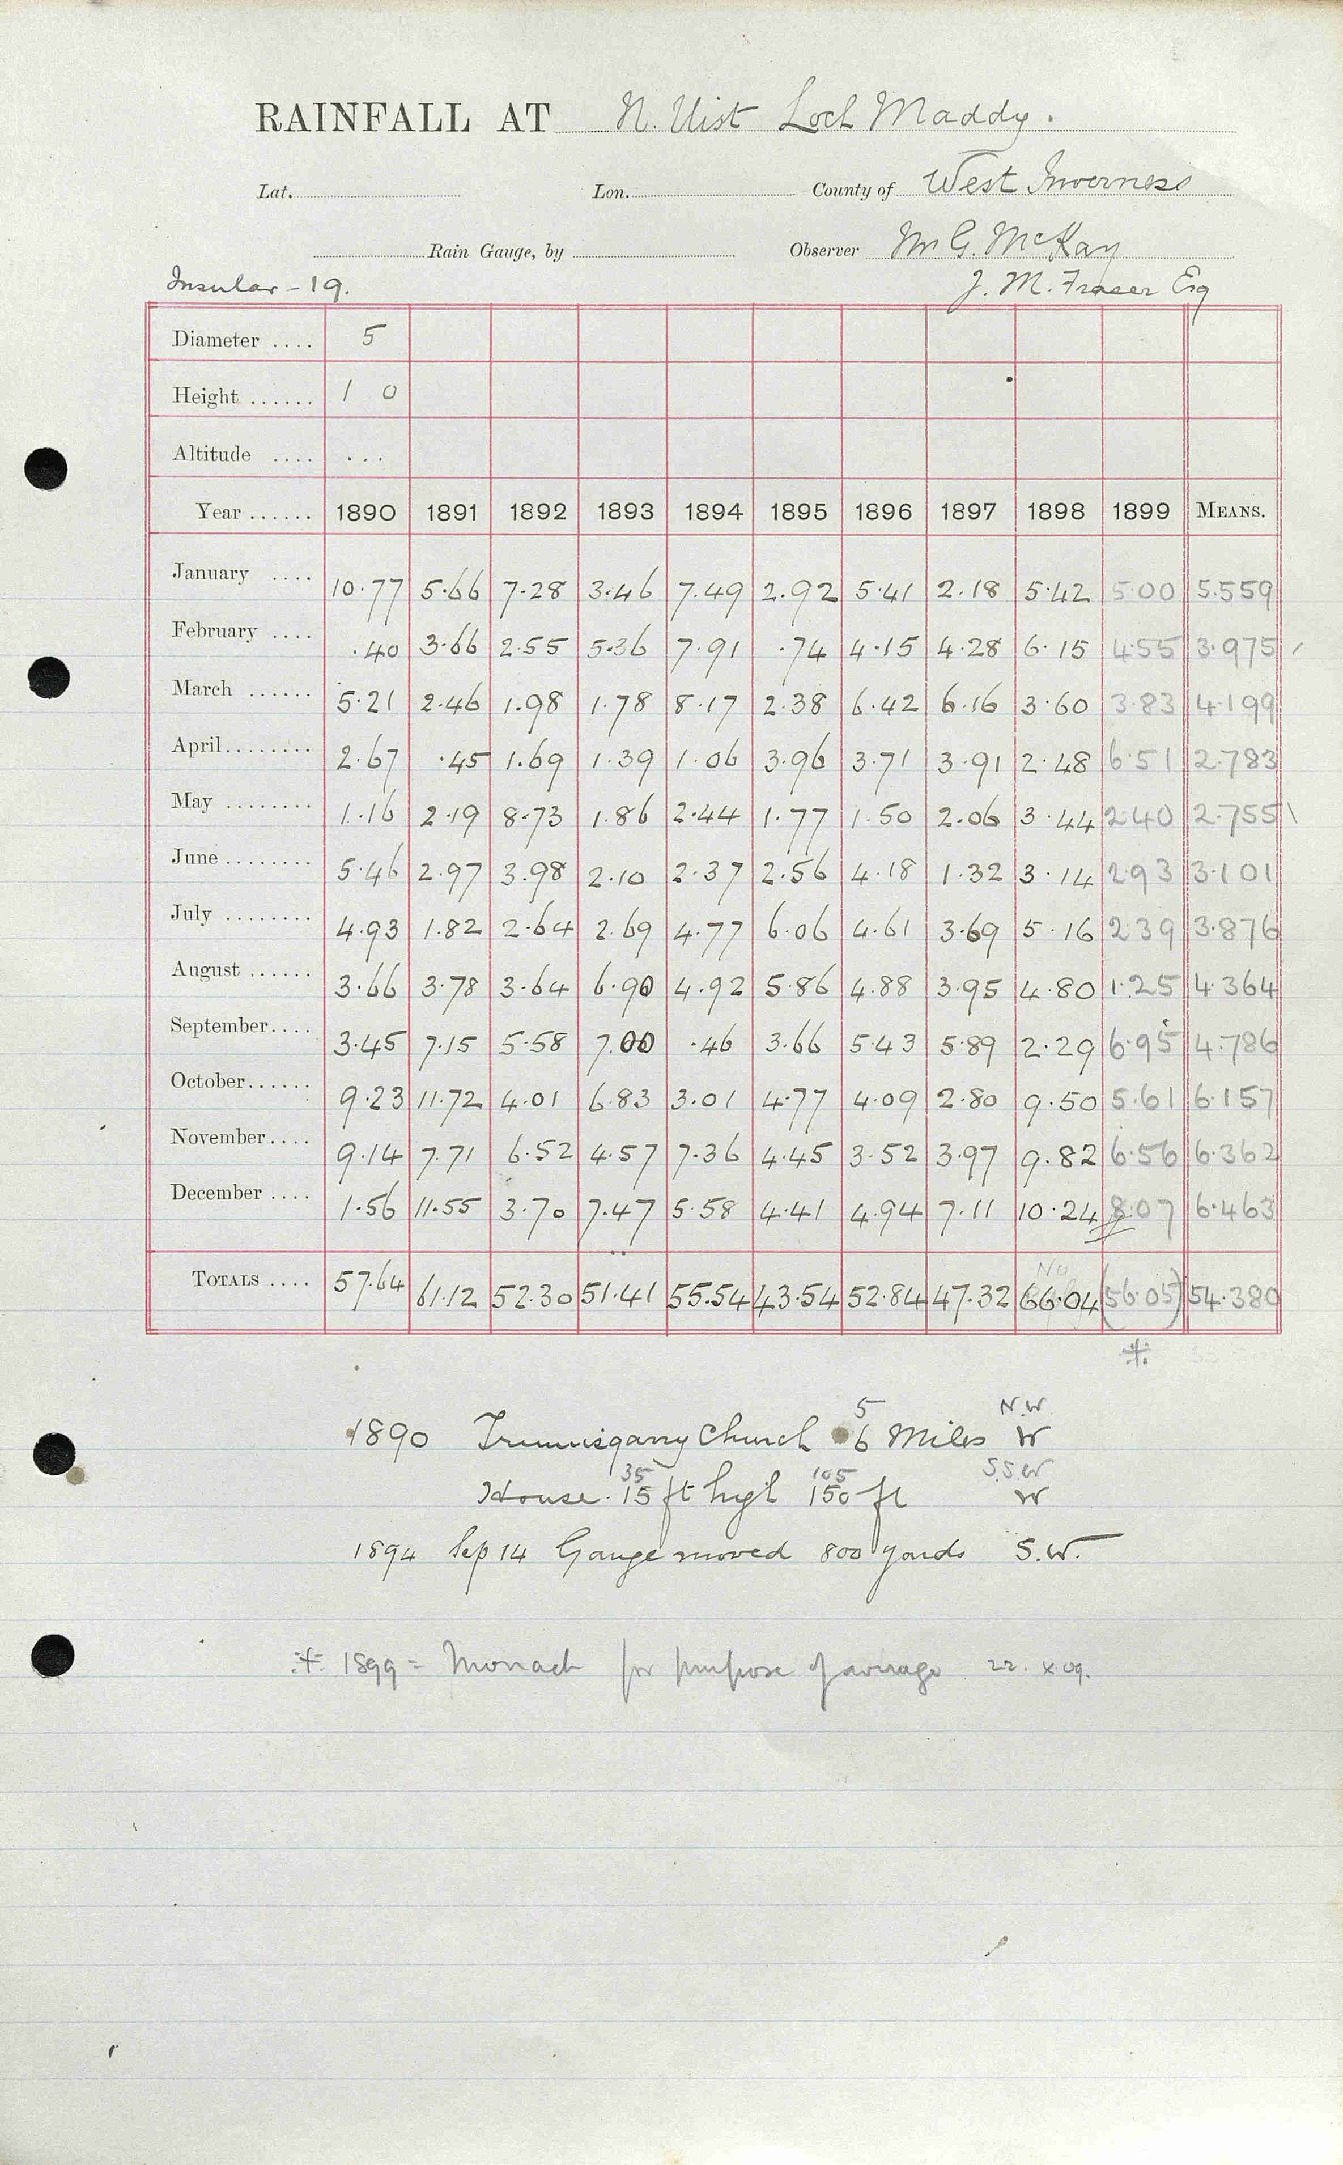 RAINFALL AT N. Uist Loch Maddy.
Lat. Lon. County of West Inverness
Rain Gauge, by Observer Mr G. McKay
Insular - 19. J. M. Fraser Esq
Diameter .... 5
Height ...... 1 0
Altitude .... ...
Year ...... 1890 1891 1892 1893 1894 1895 1896 1897 1898 1899 MEANS.
January .... 10.77 5.66 7.28 3.46 7.49 2.92 5.41 2.18 5.42 5.00 5.559
February .... .40 3.66 2.55 5.36 7.91 .74 4.15 4.28 6.15 4.55 3.975
March ...... 5.21 2.46 1.98 1.78 8.17 2.38 6.42 6.16 3.60 3.83 4.199
April ........ 2.67 .45 1.69 1.39 1.06 3.96 3.71 3.91 2.48 6.51 2.783
May ........ 1.16 2.19 8.73 1.86 2.44 1.77 1.50 2.06 3.44 2.40 2.755
June ........ 5.46 2.97 3.98 2.10 2.37 2.56 4.18 1.32 3.14 2.93 3.101
July ........ 4.93 1.82 2.64 2.69 4.77 6.06 4.61 3.69 5.16 2.39 3.876
August ...... 3.66 3.78 3.64 6.90 4.92 5.86 4.88 3.95 4.80 1.25 4.364
September .... 3.45 7.15 5.58 7.00 .46 3.66 5.43 5.89 2.29 6.95 4.786
October ...... 9.23 11.72 4.01 6.83 3.01 4.77 4.09 2.80 9.50 5.61 6.157
November .... 9.14 7.71 6.52 4.57 7.36 4.45 3.52 3.97 9.82 6.56 6.362
December .... 1.56 11.55 3.70 7.47 5.58 4.41 4.94 7.11 10.24 8.07 6.463
No
TOTALS .... 57.64 61.12 52.30 51.41 55.54 43.54 52.84 47.32 66.04 (56.05) 54.380
*
5 N.W
1890 Trumisgarry Church 6 Miles W
35 105 S.S.W
House 15 ft high 150 ft W
1894 Sep 14 Gauge moved 800 yards S.W.
* 1899 = Monach for purpose of average 22. x 09.